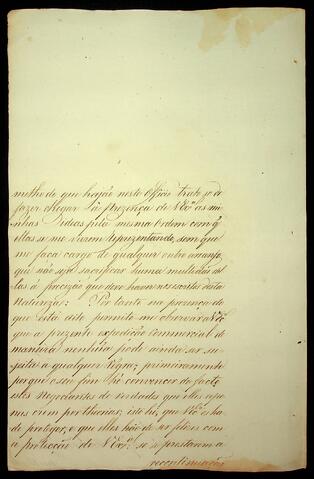 melho de que hoje neste Officio trato, p.ª
fazer chegar á prezença de V Ex.ª as mi-
nhas Ideias pela mesma Ordem com q
ellas se me vierem reprezentando, sem que
me faça cargo de qualquer outro arranjo,
que não seja sacrificar huma multidão del
las á precizão que deve haver
Natureza: Por tanto na prezença do
que dito deixo permita me observar a V Ex.ª
que a prezente expedição commercial de
maneira nenhuã pode ainda ser su-
geita a qualquer Regra; primeiramente
porque o seu fim hé convencer de facto
estes Negociantes de verdades que elles ape-
nas criem por theorias; isto hé, que V Ex.ª os ha
de proteger, e que elles hão de ser felizes com
a protecção de V Ex.ª se se prestarem a